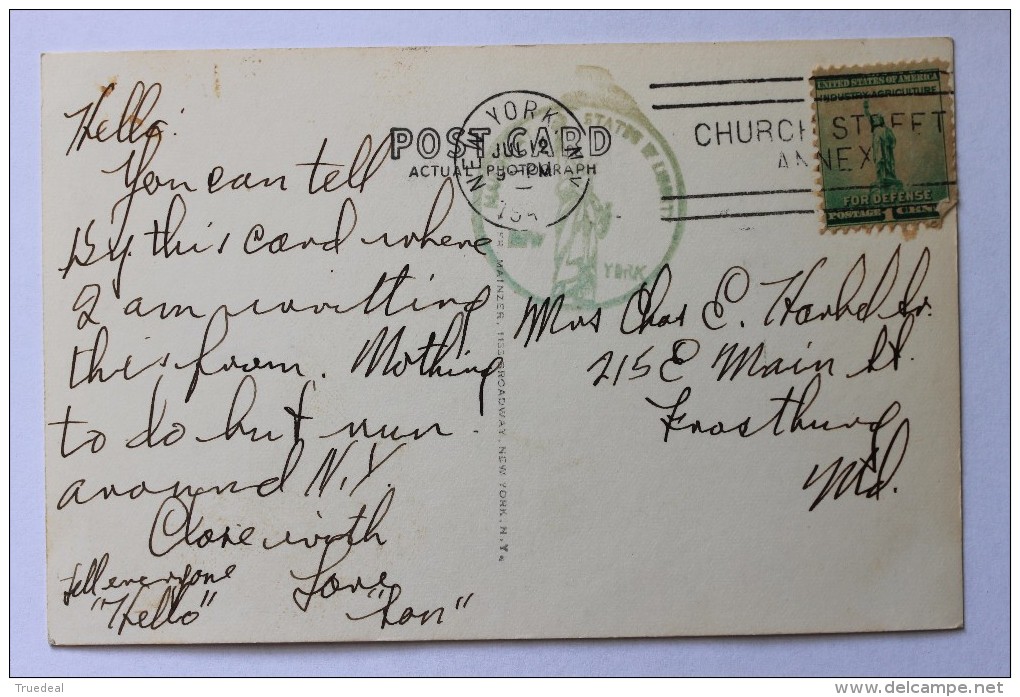 Hello:
You can tell
by this card where
I am writting
this from. Nothing
to do but run
around N.Y.
Close with
Love
"Lou"
Tell everyone
"Hello"
POST CARD
ACTUAL PHOTOGRAPH
NEW YORK, N.Y.
JUL 12
9 - PM
CHURCH STREET
ANNEX
UNITED STATES OF AMERICA
INDUSTRY AGRICULTURE
FOR DEFENSE
POSTAGE 1 CENT
STATUE OF LIBERTY
NEW YORK
MAINZER, 1182 BROADWAY, NEW YORK, N.Y.
Mrs Chas E.
215 E Main St.
Frostburg
Md.
Truedeal
www.delcampe.net